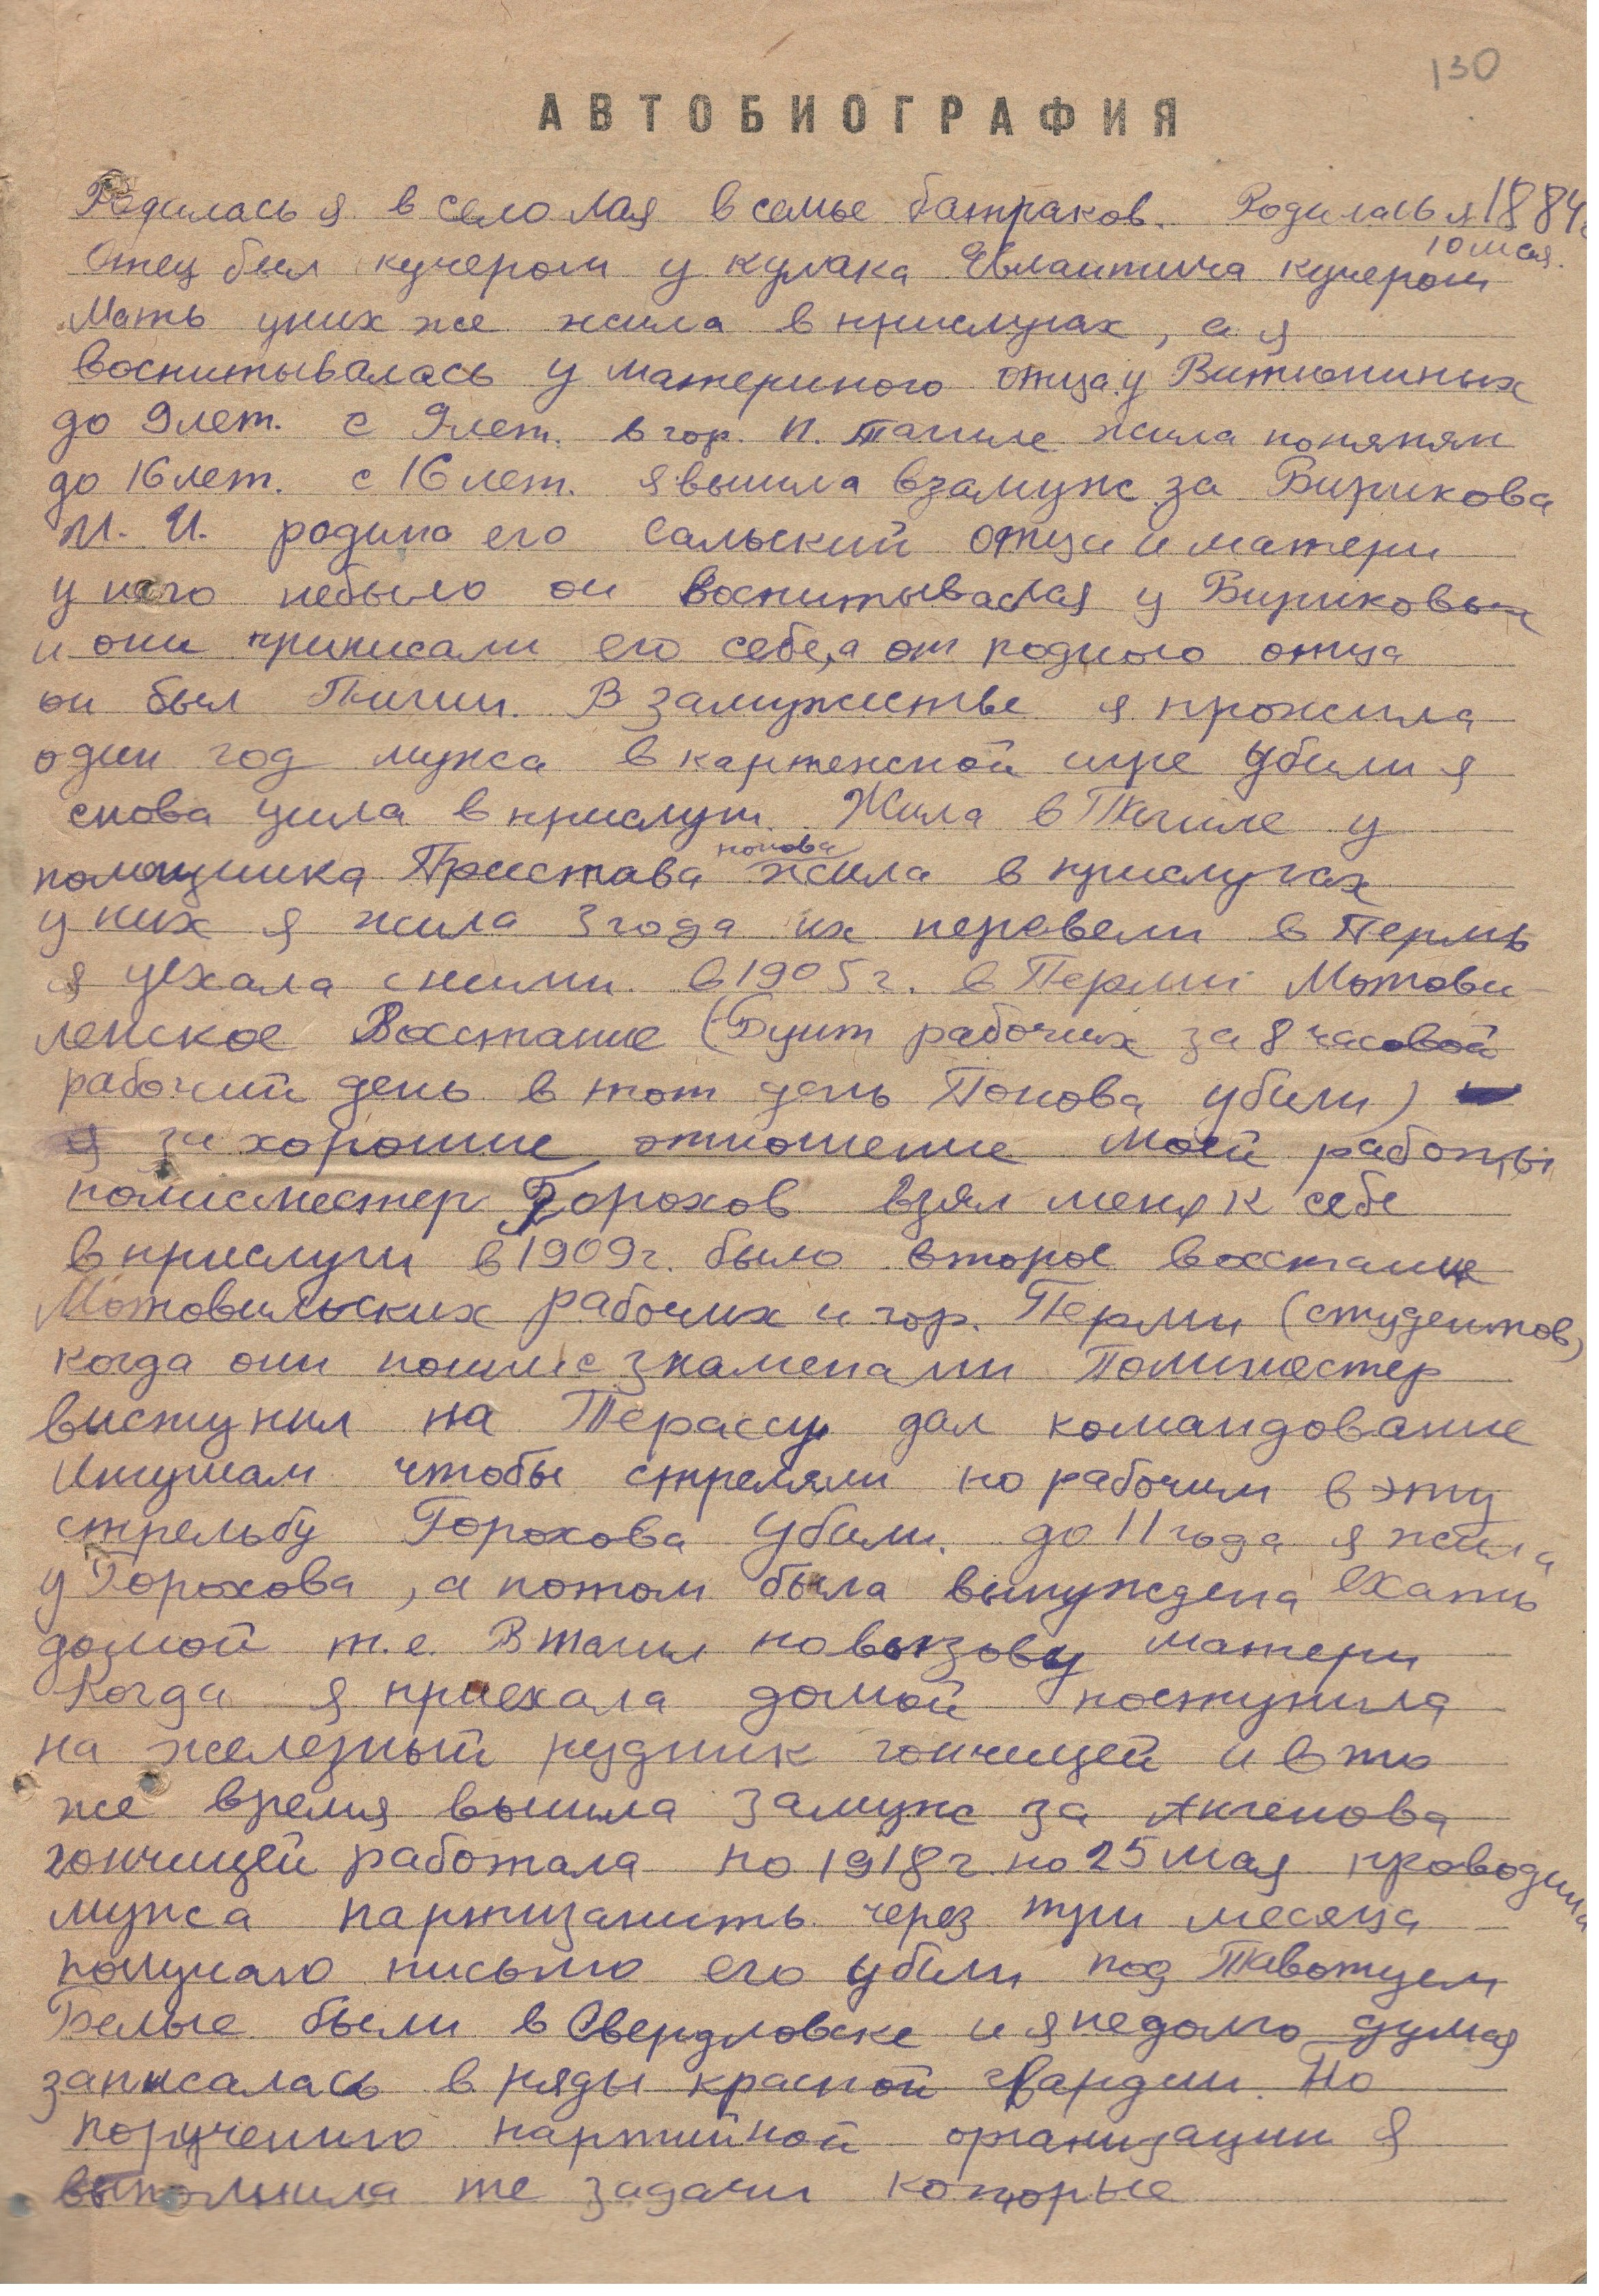 130
АВТОБИОГРАФИЯ
Родилась я в село Лая в семье батраков. Родилась я 1884г
10 мая.
Отец был кучером у кулака кучером
Мать уних же жила в прислугах, а я
воспитывалась у материного отца у Витюниных
до 9 лет. с 9 лет. в гор. Н. Тагиле жила поняням
до 16 лет. с 16 лет. я вышла взамуж за Бирикова
М. И. родина его Салький отца и матери
у него небыло он воспитывался у Бириковых
и они приписали его себе, а от родного отца
он был Пигин. В замужестве я прожила
один год мужа в картежной игре убили я
снова ушла в прислуги. Жила в Тагиле у
помощника Пристава попова жила в прислугах
у них я жила 3 года их перевели в Пермь
я уехала сними. в 1905 г. в Перми Мотови-
ленское Восстание (Бунт рабочих за 8 часовой
рабочий день в тот день Попова убили)
я за хорошие отношение моей работы
полисместер Горохов взял меня к себе
в прислуги в 1909 г. было второе восстание
Мотовильских рабочих и гор. Перми (студентов)
когда они пошли с знаменами Полиместер
выступил на Терассу дал командование
Ингушам чтобы стреляли по рабочим в эту
стрельбу Горохова убили. до 11 года я жила
у Горохова, а потом была вынуждена ехать
домой т.е. В Тагил по вызову матери
Когда я приехала домой поступила
на железный рудник гонщицей и в то
же время вышла замуж за Аксенова
гонщицей работала по 1918 г. по 25 мая проводила
мужа партизанить через три месяца
получаю письмо его убили под Таватуем
Белые были в Свердловске и я недолго думая
записалась в ряды красной гвардии. По
поручению партийной организации я
выполнила те задачи которые